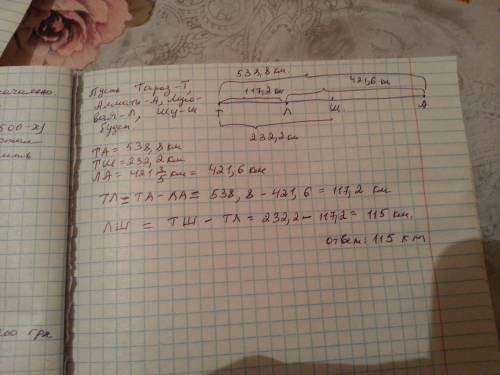 538,8 км
421,6 км
117,2 км
Т Л Ш А
232,2 км
Пусть Тараз-Т,
Алматы-А, Луго-
вая-Л, Шу-Ш
будем
ТА = 538,8 км
ТШ = 232,2 км
ЛА = 421 3/5 км = 421,6 км
ТЛ = ТА - ЛА = 538,8 - 421,6 = 117,2 км
ЛШ = ТШ - ТЛ = 232,2 - 117,2 = 115 км.
ответ: 115 км.
500-х)